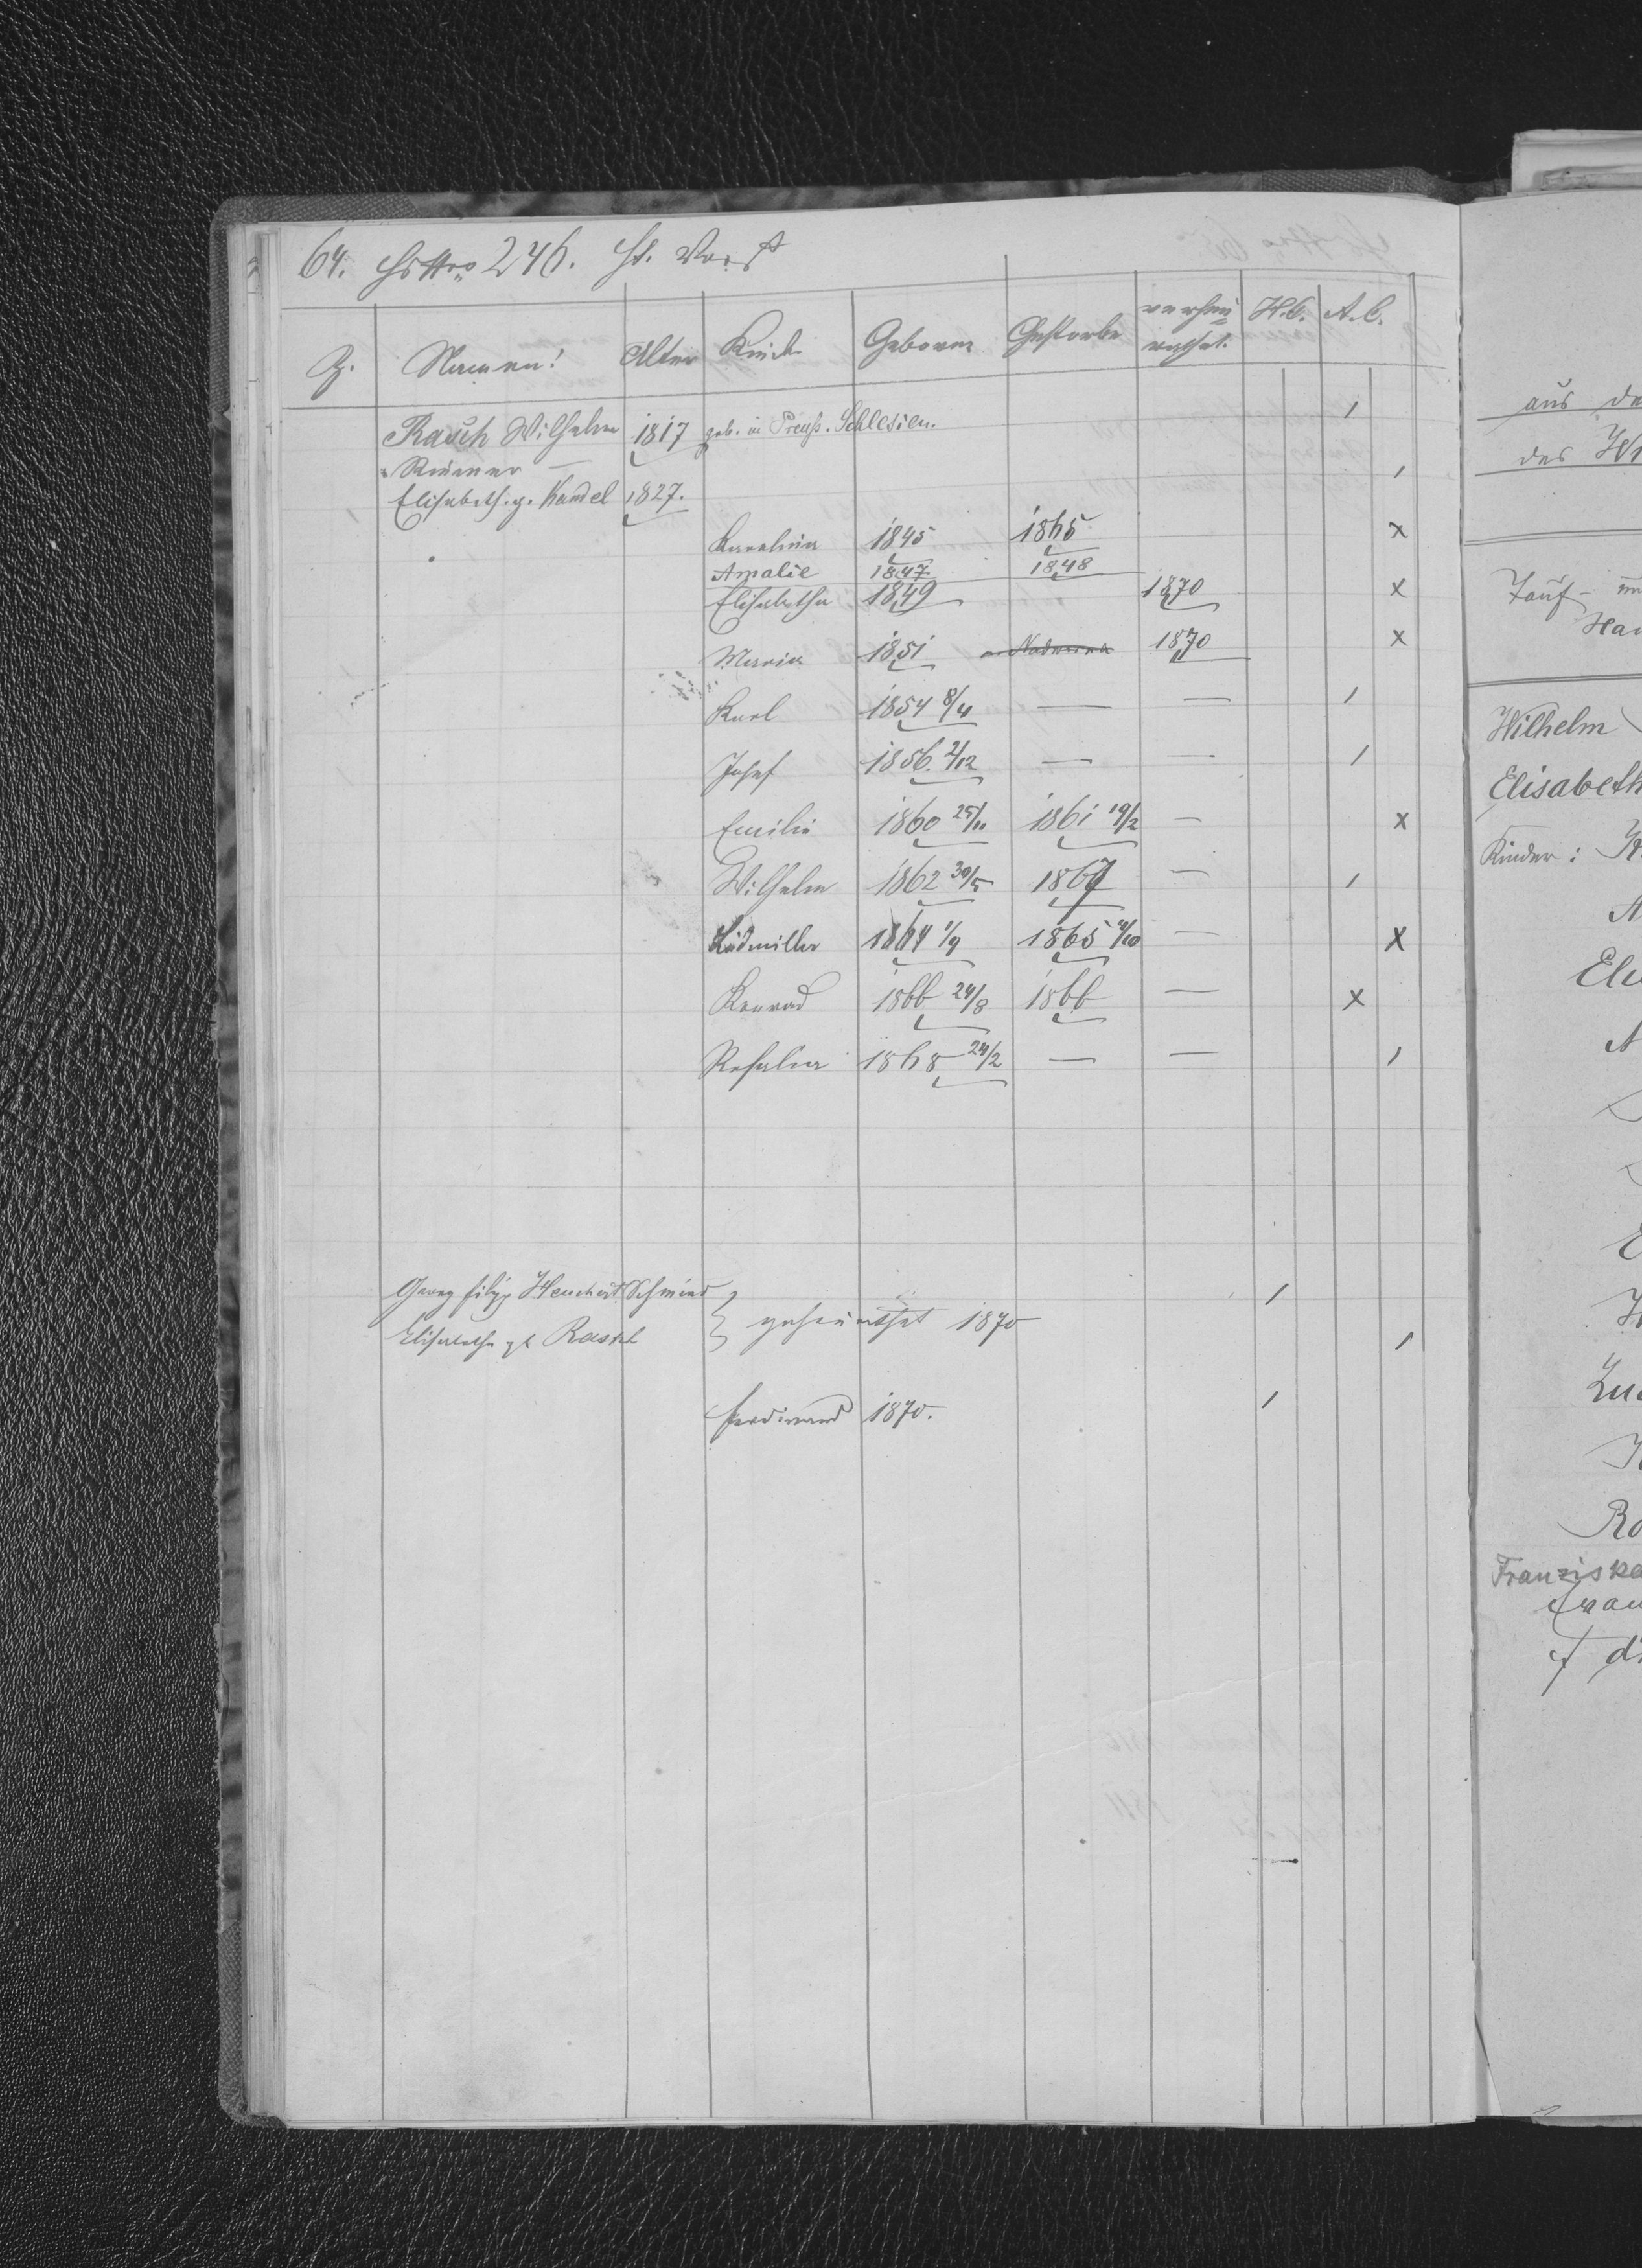 64. HsNro 246. St. Vorst
Z. Namen! Alter Kinder Geboren Gestorben verheu= H.C. A.C.
rathet.
Rasch Wilhelm 1817 geb. in Preuß. Schlesien.
Riemer —
Elisabeth. g. Kandel 1827.
Karolina 1845 1865 x
Amalie 1847 1848
Elisabetha 1849 1870 x
Maria 1851 Nadworna 1870 x
Karl 1854 8/4 — — /
Josef 1856. 2/12 — — /
Emilie 1860 25/11 1861 19/2 — x
Wilhelm 1862 30/5 1867 — /
Ludmilla 1864 1/9 1865 4/10 — x
Konrad 1866 24/8 1866 — x
Rosalia 1868 24/2 — — /
Georg Filipp Heuchert Schmied /
Elisabetha gb Rasch } geheurathet 1870 /
Ferdinand 1870. /
aus de
des W
Tauf-
Ha
Wilhelm
Elisabeth
Kinder:
A
Eli
Lu
Ro
Franziska